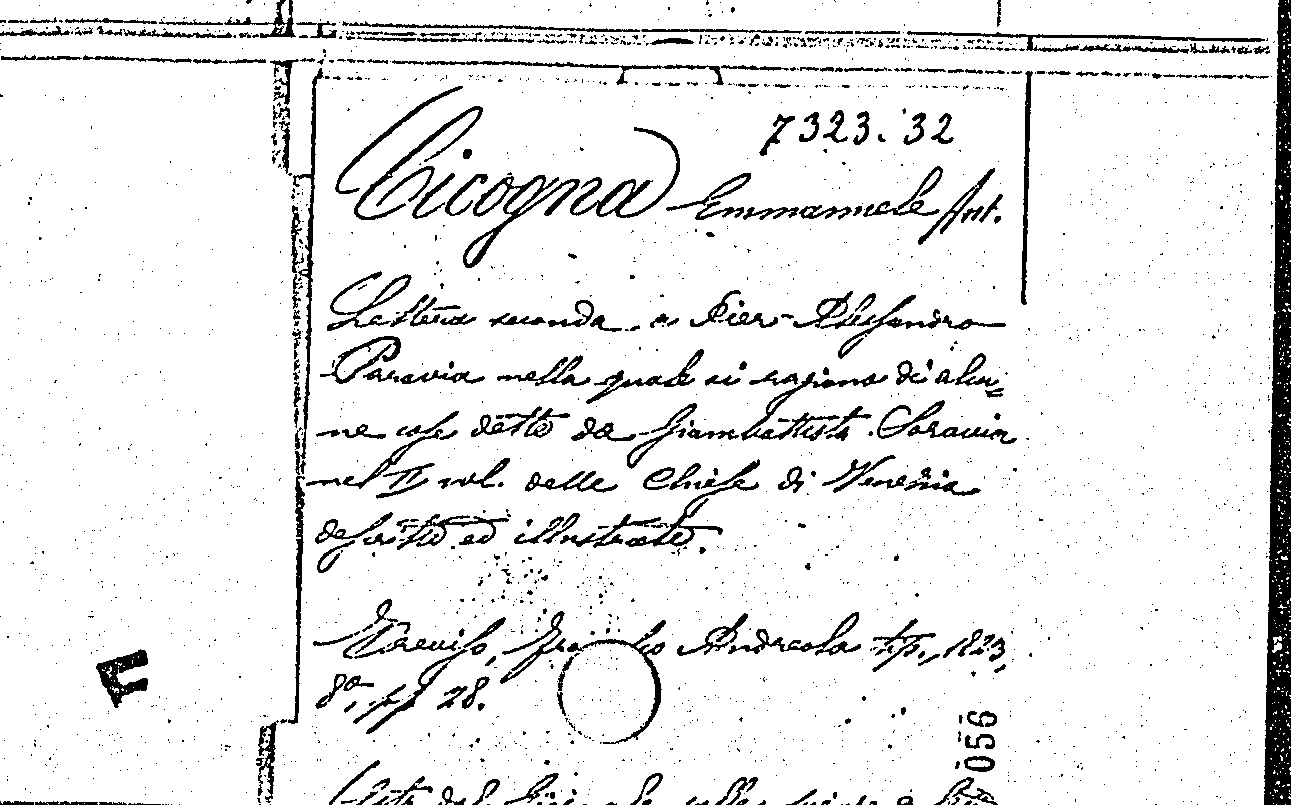 7323.32
Cicogna Emmanuele Ant.
Lettera seconda a Pier Alessandro
Paravia nella quale si ragiona di alcu=
ne cose dette da Giambattista Soravia
nel II vol. delle Chiese di Venezia
descritte ed illustrate.
Treviso, Andreola tip., 1823,
8º, pp 28.
056